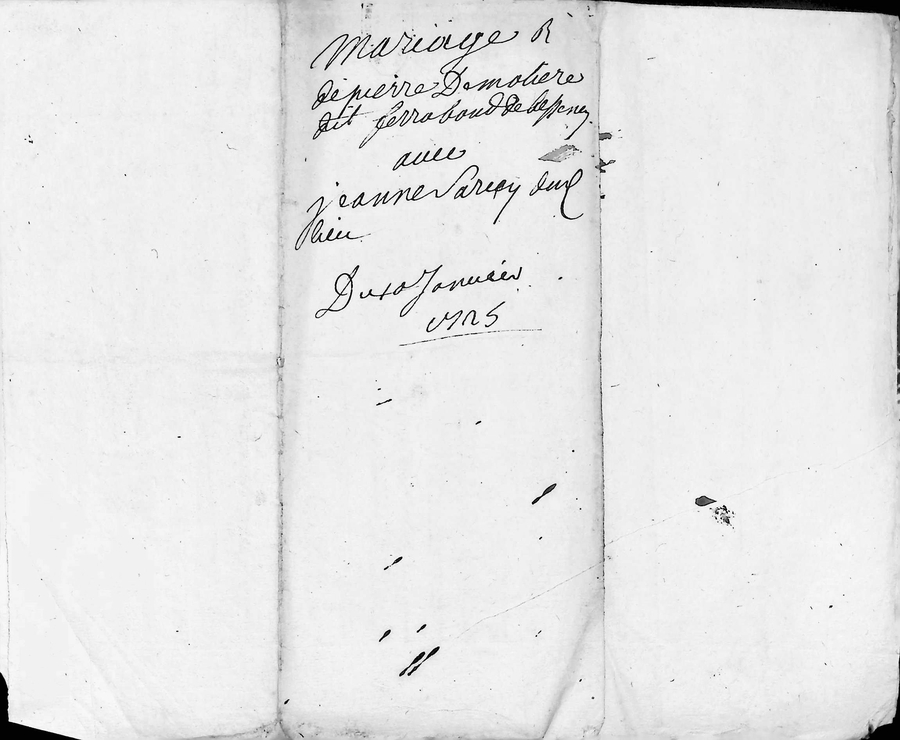 Mariage
de pierre Demoliere
dit ferraboud de bessenay
avec
jeanne Sarcey dud
lieu
Du 10 Janvier
1725